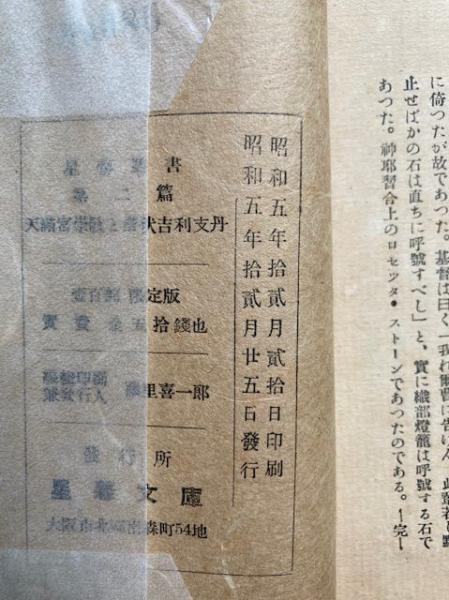 に倚つたが故であつた。基督は曰く「我れ爾曹に告げん、此輩若し默
止せばかの石は直ちに呼號すべし」と、實に織部燈籠は呼號する石で
あつた。神耶習合上のロセツタ・ストーンであつたのである。―完―
昭和五年拾貳月貳拾日印刷
昭和五年拾貳月廿五日發行
書
第二篇
天滿宮崇敬と潛伏吉利支丹
壹百部限定版
實費金五拾錢也
編輯印刷
兼發行人
里喜一郎
發行所
文庫
大阪市北區南森町54地